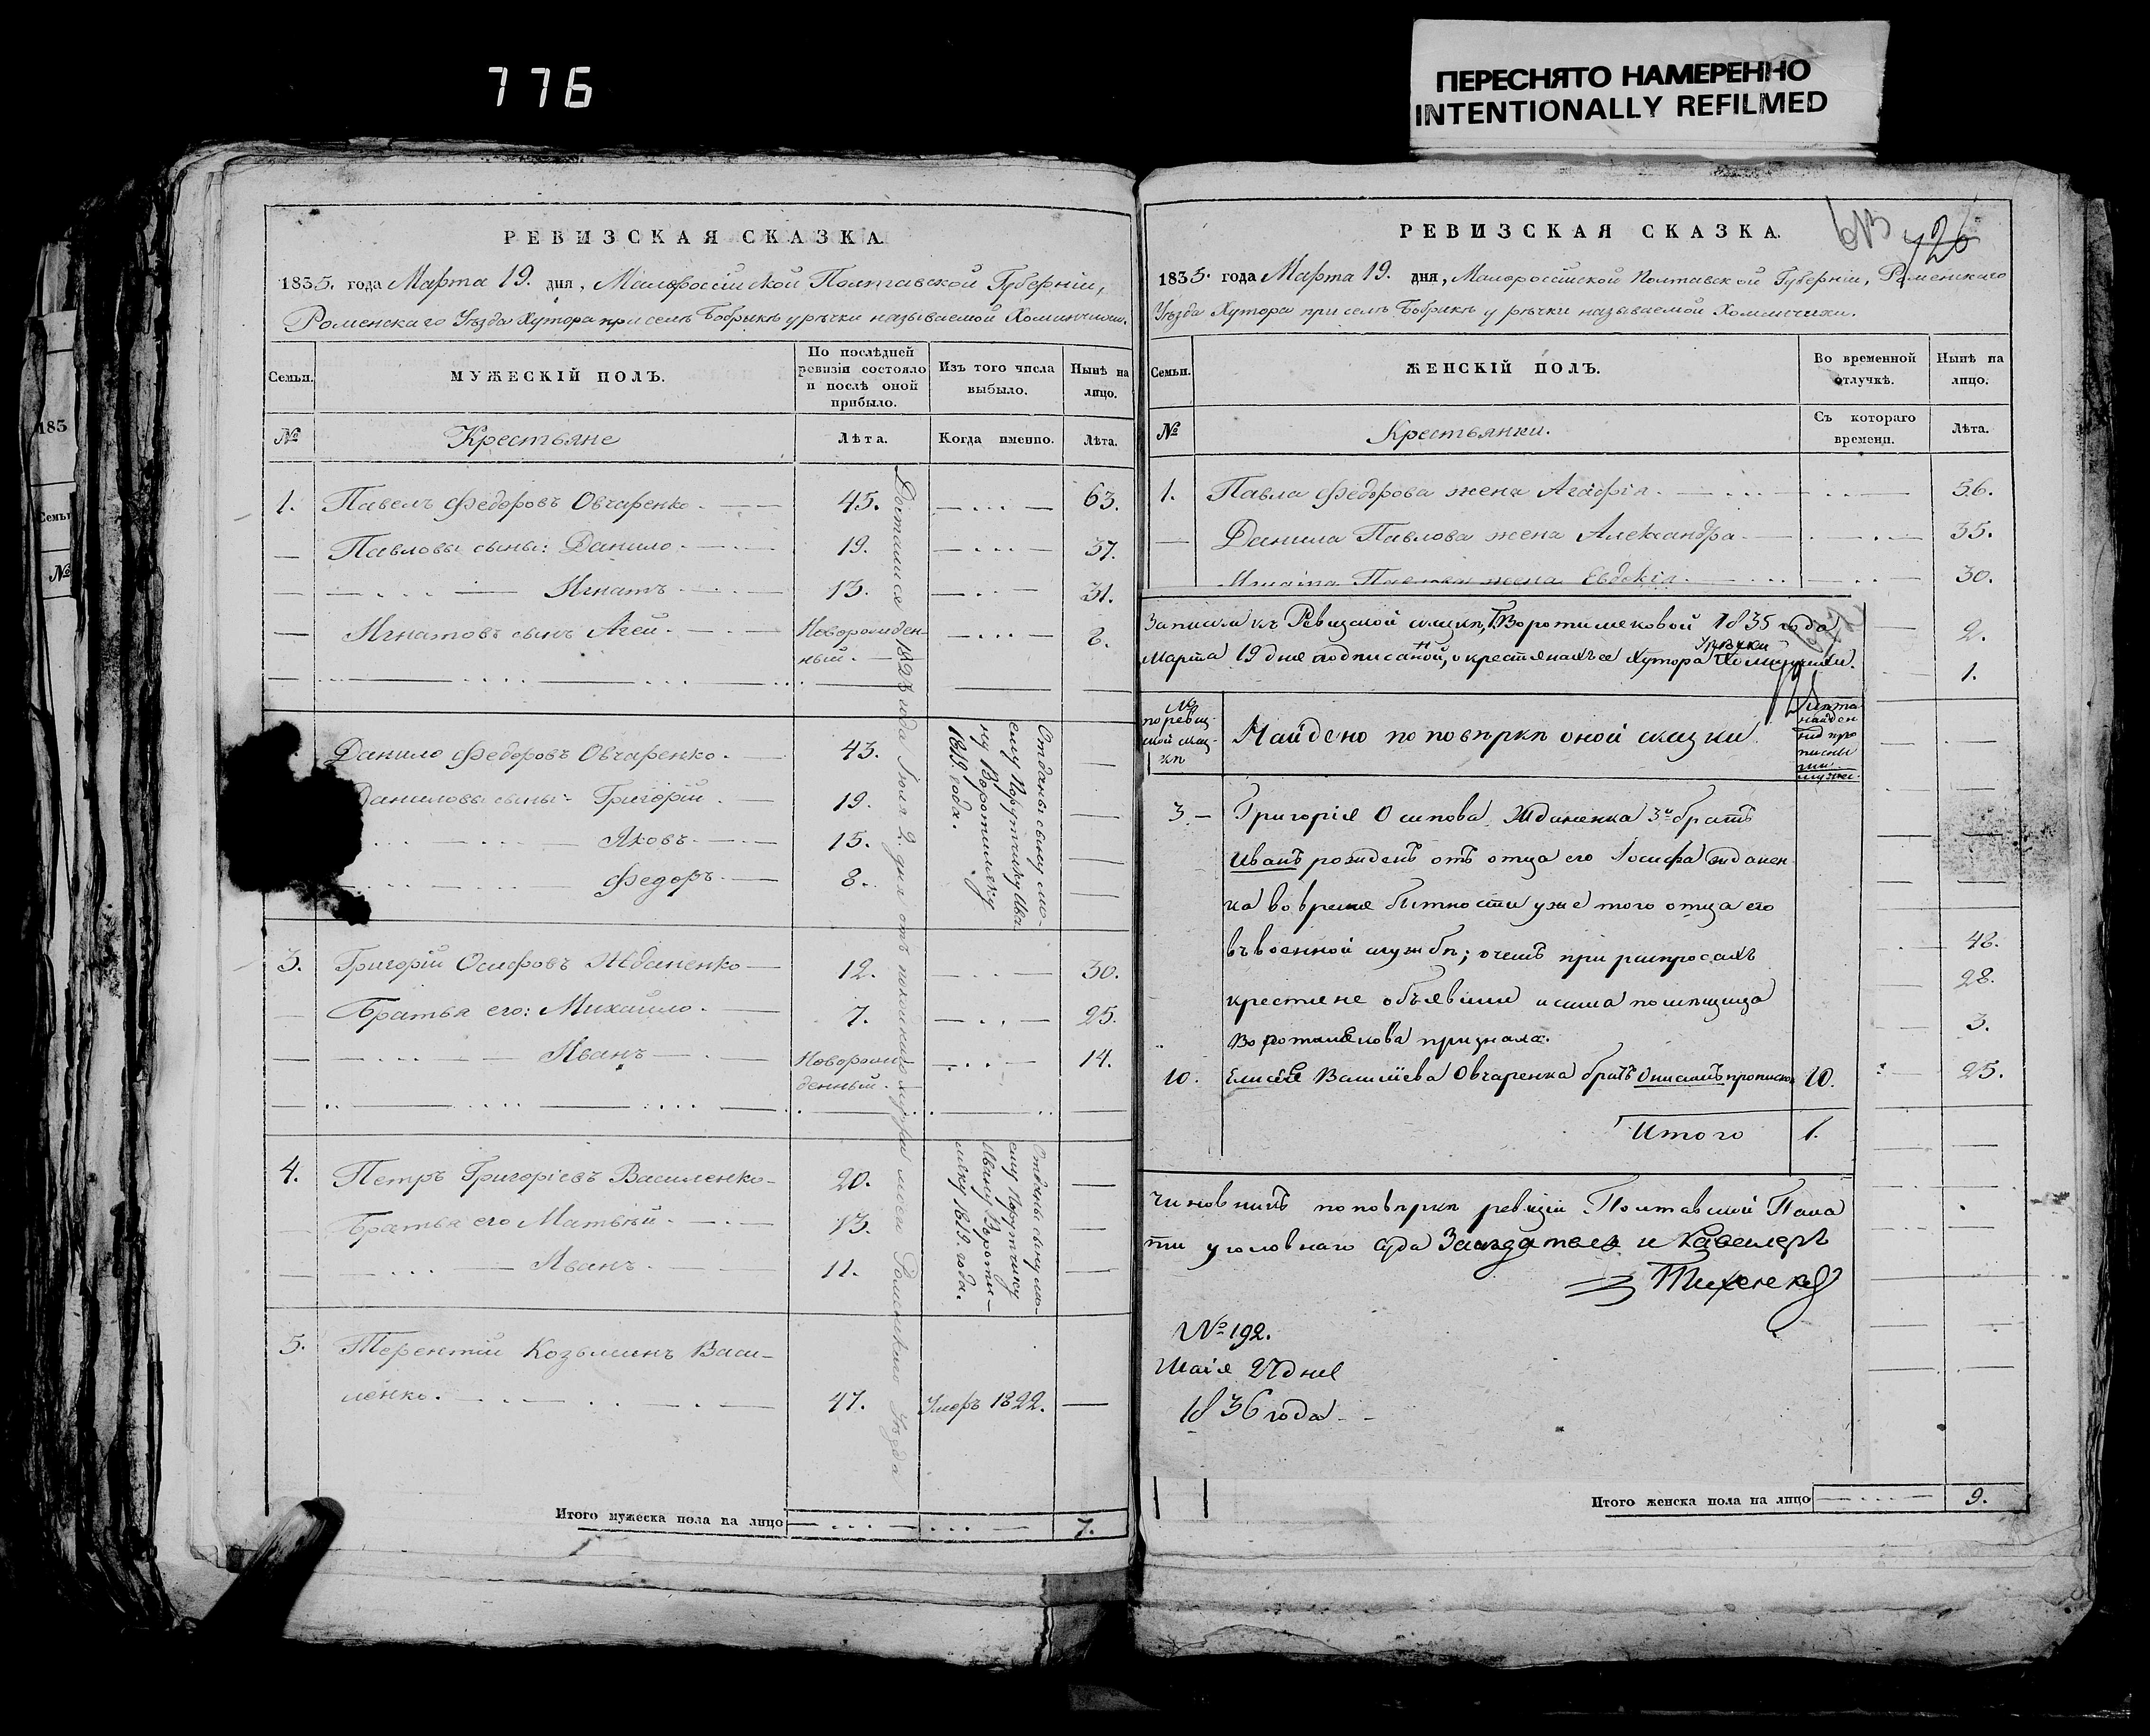 776
ПЕРЕСНЯТО НАМЕРЕННО
INTENTIONALLY REFILMED
РЕВИЗСКАЯ СКАЗКА.
1835. года Марта 19. дня, Малороссійской Полтавской Губерніи,
Роменскаго Уѣзда Хутора при селѣ Бобрикѣ у рѣчки называемой Хоминчихи.
Семьи.
МУЖЕСКІЙ ПОЛЪ.
По послѣдней
ревизіи состояло
и послѣ оной
прибыло.
Изъ того числа
выбыло.
Нынѣ на
лицо.
№
Крестьяне
Лѣта.
Когда именно.
Лѣта.
1. Павелъ Федоровъ Овчаренко. 45. 63.
Павловы сыны: Данило. 19. 37.
Игнатъ 13. 31.
Игнатовъ сынъ Агей. Новорожден-
ный. 8.
Данило Федоровъ Овчаренко. 43.
Даниловы сыны: Григорій. 19.
Яковъ. 15.
Федоръ. 8.
Отданы сыну мо-
ему Поручику Ива-
ну Воротиляку
1819. года.
3. Григорій Осифовъ Жданенко 12. 30.
Братья его: Михайло. 7. 25.
Иванъ Новорож-
денный. 14.
4. Петръ Григоріевъ Василенко 20.
Братья его Матвѣй. 13.
Иванъ. 11.
Отданы сыну мо-
ему Поручику
Ивану Вороти-
ляку 1819. года.
5. Терентій Козьминъ Васи-
ленко. 47. Умеръ 1822.
Достались 1823 года Іюля 2. дня отъ покойнаго мужа моего Роменскаго Уѣзда
Итого мужеска пола на лицо 7.
185
Семьи
№
РЕВИЗСКАЯ СКАЗКА.
613
426
1835. года Марта 19. дня, Малороссійской Полтавской Губерніи, Роменскаго
Уѣзда Хутора при селѣ Бобрикѣ у рѣчки называемой Хоминчихи.
Семьи.
ЖЕНСКІЙ ПОЛЪ.
Во временной
отлучкѣ.
Нынѣ на
лицо.
№
Крестьянки.
Съ котораго
времени.
Лѣта.
1. Павла Федорова жена Агафія. 56.
Данила Павлова жена Александра 35.
Игната Павлова жена Евдокія. 30.
2.
1.
48.
28.
3.
25.
Записка къ Ревизской сказкѣ, Воротиляковой 1835 года
Марта 19 дня подписаной, о крестянахъ ея Хутора у рѣчки Хоминчихи.
№
по ревиз-
ской сказ-
кѣ
Найдено по повѣркѣ оной сказки
Лѣта
найден
3. Григорія Осипова Жданенка 3й братъ
Иванъ рожденъ отъ отца его Іосифа жданен
ка во время битности уже того отца его
въ военной службѣ; о чемъ при распросахъ
крестяне объявили и сама помѣщица
Воротилякова признала.
10. Елисея Василіева Овчаренка братъ Онисимъ прописной 10.
Итого 1.
Чиновникъ по повѣркѣ ревизіи Полтавской Пала
ти уголовнаго суда Засѣдатель и Кавалеръ
Тихенко
№ 192.
Маія 27 дня
1836 года
Итого женска пола на лицо 9.